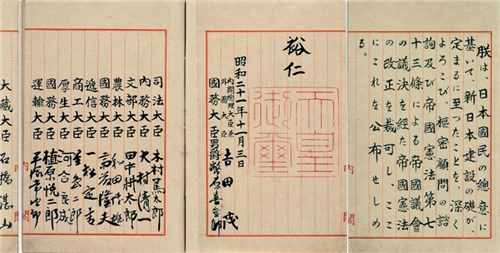 朕は、日本國民の總意に
基いて、新日本建設の礎が、
定まるに至つたことを、深く
よろこび、樞密顧問の諮
詢及び帝國憲法第七
十三條による帝國議會
の議決を經た帝國憲法
の改正を裁可し、ここ
にこれを公布せしめ
る。
内閣
裕仁
天皇
御璽
昭和二十一年十一月三日
内閣總理大臣兼
外務大臣
吉田茂
國務大臣 男爵幣原喜重郎
司法大臣 木村篤太郎
内務大臣 大村清一
文部大臣 田中耕太郎
農林大臣 和田博雄
國務大臣 斎藤隆夫
遞信大臣 一松定吉
商工大臣 星島二郎
厚生大臣 河合良成
國務大臣 植原悦二郎
運輸大臣 平塚常次郎
大藏大臣 石橋湛山